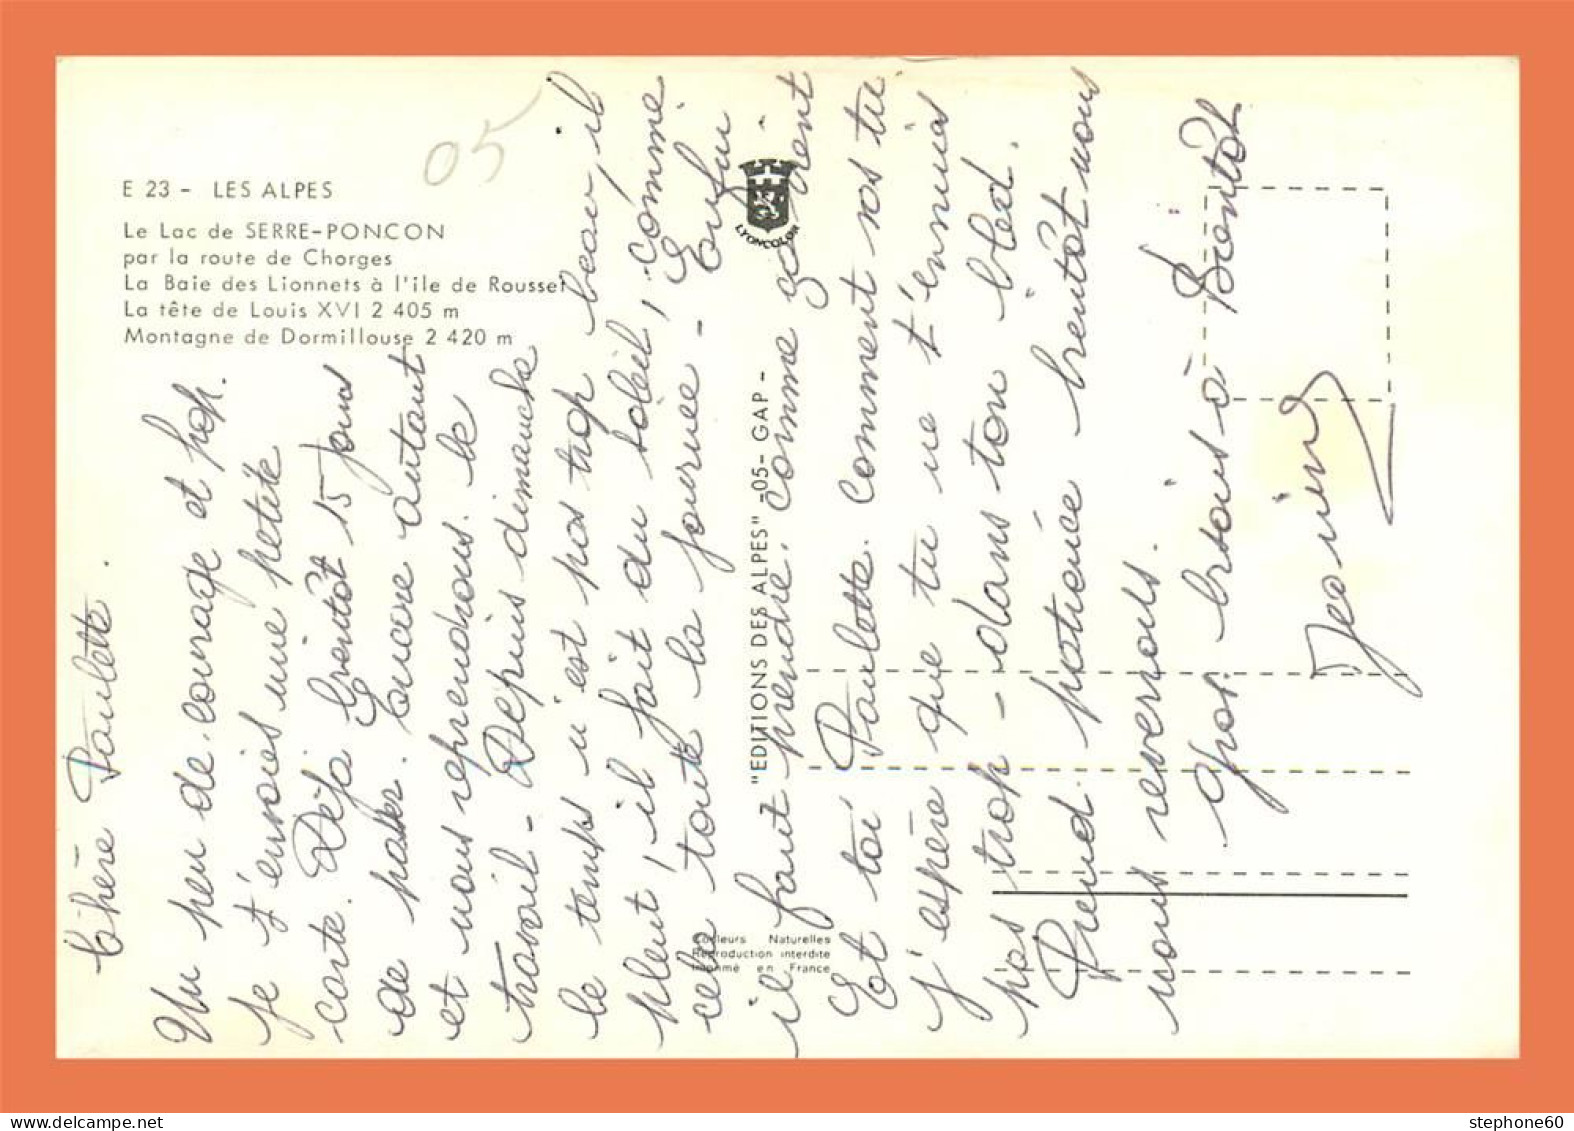 05
E 23 - LES ALPES
Le Lac de SERRE-PONCON
par la route de Chorges
La Baie des Lionnets à l'ile de Rousset
La tête de Louis XVI 2 405 m
Montagne de Dormillouse 2 420 m
LYONCOLOR
"EDITIONS DES ALPES" -05- GAP -
Couleurs Naturelles
Reproduction interdite
Imprimé en France
Chère Paulette.
Un peu de courage et hop.
je t'envoies une petite
carte. Déjà bientôt 15 jours
de passer. Encore autant
et nous reprendrons le
travail - Depuis dimanche
le temps n'est pas trop beau, il
pleut, il fait du soleil, comme
cela toute la journee - Enfin
il faut prendre comme ça vient
Et toi Paulette. Comment vas tu
J'espère que tu ne t'ennuies
pas trop - dans ton bled.
Prend patience bientôt nous
nous reverrons.
Gros bisous à Bientôt
Janine
stephone60